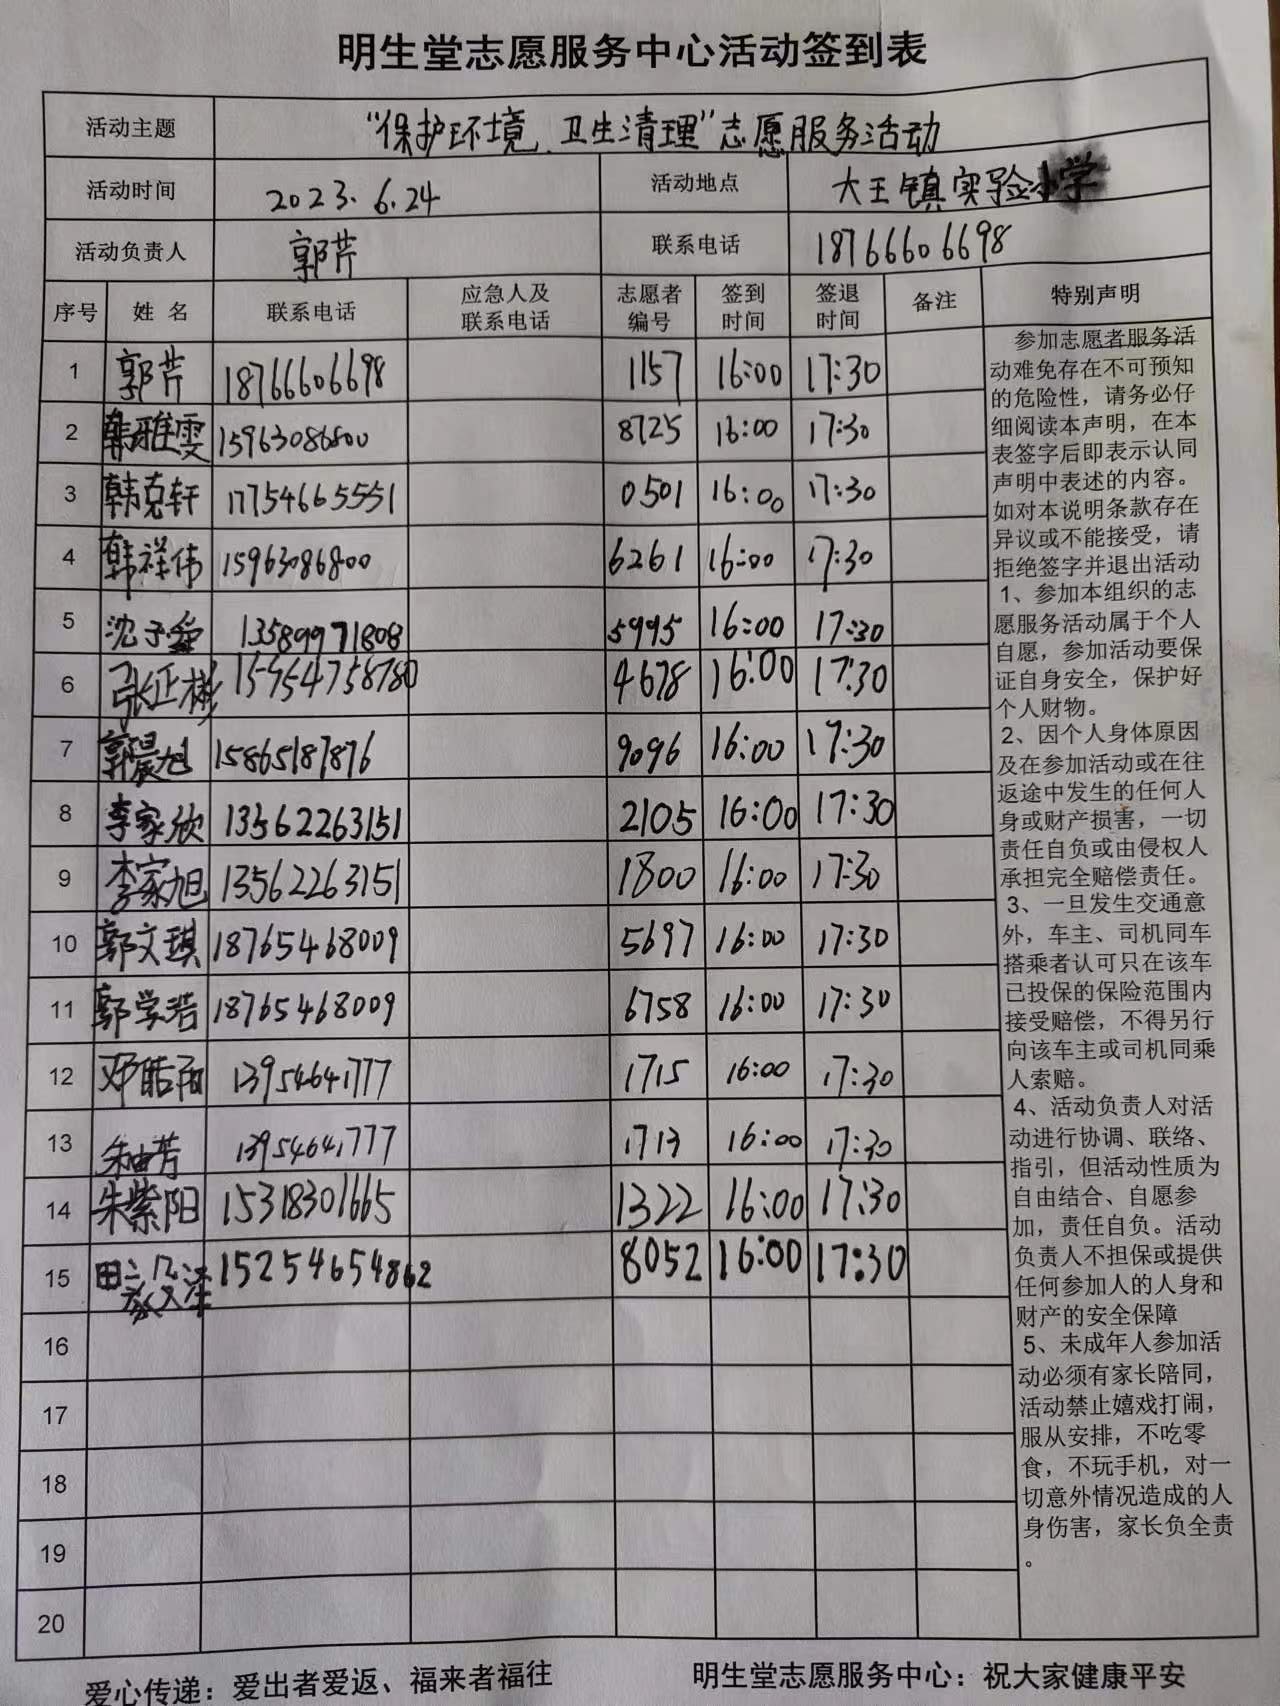 明生堂志愿服务中心活动签到表
活动主题 “保护环境、卫生清理”志愿服务活动
活动时间 2023.6.24 活动地点 大王镇实验小学
活动负责人 郭芹 联系电话 18766606698
序号 姓名 联系电话 应急人及联系电话 志愿者编号 签到时间 签退时间 备注 特别声明
1 郭芹 18766606698 1157 16:00 17:30
2 韩雅雯 15963086800 8725 16:00 17:30
3 韩克轩 17754665551 0501 16:00 17:30
4 韩祥伟 15963086800 6261 16:00 17:30
5 沈子 13589971808 5995 16:00 17:30
6 张正彬 4678 16:00 17:30
7 郭晨旭 15865187876 9096 16:00 17:30
8 李家欣 13562263151 2105 16:00 17:30
9 李家旭 13562263151 1800 16:00 17:30
10 郭文琪 18765468009 5697 16:00 17:30
11 郭学浩 18765468009 6758 16:00 17:30
12 邓皓阳 13954641777 1715 16:00 17:30
13 朱由芳 13954641777 1713 16:00 17:30
14 朱紫阳 15318301665 1322 16:00 17:30
15 田 15254654862 8052 16:00 17:30
16
17
18
19
20
参加志愿者服务活
动难免存在不可预知
的危险性，请务必仔
细阅读本声明，在本
表签字后即表示认同
声明中表述的内容。
如对本说明条款存在
异议或不能接受，请
拒绝签字并退出活动
1、参加本组织的志
愿服务活动属于个人
自愿，参加活动要保
证自身安全，保护好
个人财物。
2、因个人身体原因
及在参加活动或在往
返途中发生的任何人
身或财产损害，一切
责任自负或由侵权人
承担完全赔偿责任。
3、一旦发生交通意
外，车主、司机同车
搭乘者认可只在该车
已投保的保险范围内
接受赔偿，不得另行
向该车主或司机同乘
人索赔。
4、活动负责人对活
动进行协调、联络、
指引，但活动性质为
自由结合、自愿参
加，责任自负。活动
负责人不担保或提供
任何参加人的人身和
财产的安全保障
5、未成年人参加活
动必须有家长陪同，
活动禁止嬉戏打闹，
服从安排，不吃零
食，不玩手机，对一
切意外情况造成的人
身伤害，家长负全责
。
爱心传递：爱出者爱返、福来者福往 明生堂志愿服务中心：祝大家健康平安